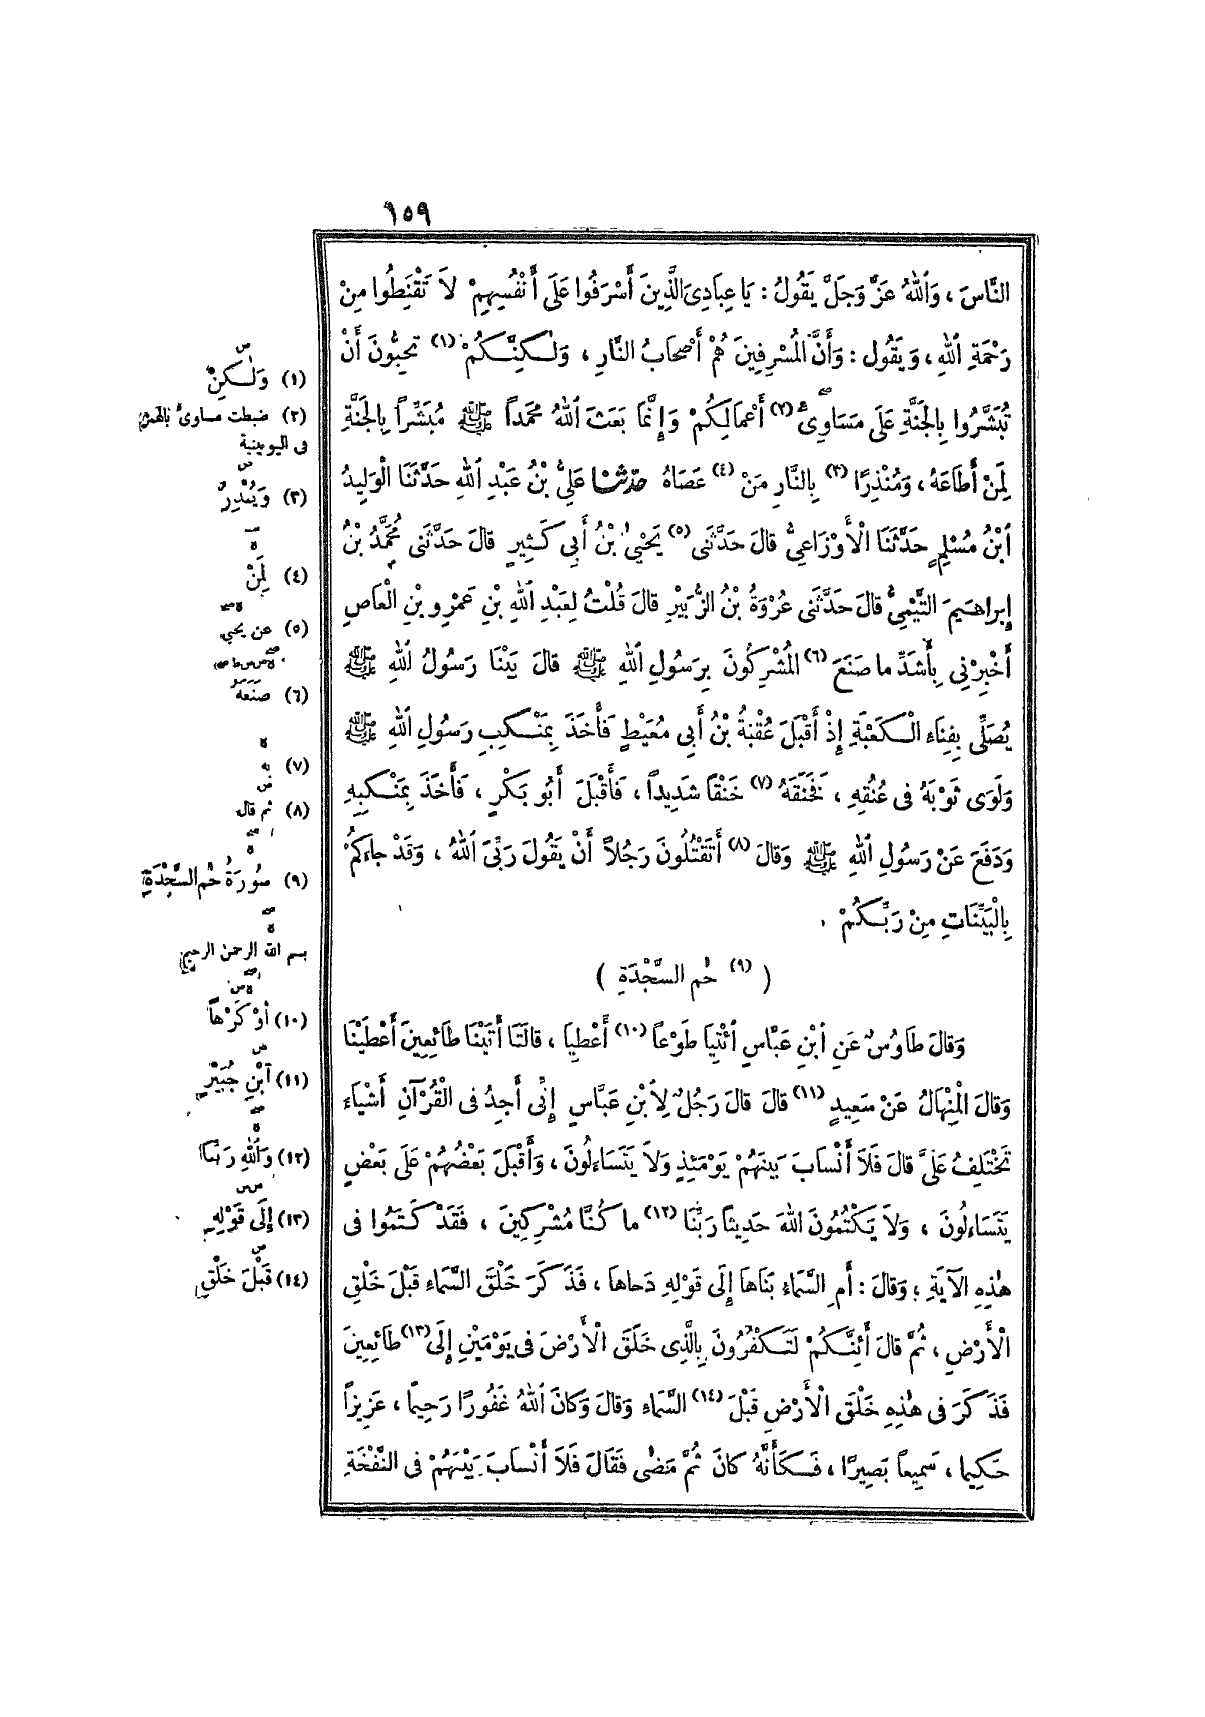 ١٥٩
النَّاسَ ، وَاللهُ عَزَّ وَجَلَّ يَقُولُ : يَا عِبَادِىَ الَّذِينَ أَسْرَفُوا عَلَى أَنْفُسِهِمْ لَا تَقْنَطُوا مِنْ
رَحْمَةِ اللهِ ، وَيَقُولُ : وَأَنَّ الْمُسْرِفِينَ هُمْ أَصْحَابُ النَّارِ ، وَلٰكِنَّكُمْ (١) تُحِبُّونَ أَنْ
تُبَشَّرُوا بِالْجَنَّةِ عَلَى مَسَاوِئِ (٢) أَعْمَالِكُمْ وَإِنَّمَا بَعَثَ اللهُ مُحَمَّداً ﷺ مُبَشِّراً بِالْجَنَّةِ
لِمَنْ أَطَاعَهُ ، وَمُنْذِرًا (٣) بِالنَّارِ مَنْ (٤) عَصَاهُ حَدَّثَنَا عَلِىُّ بْنُ عَبْدِ اللهِ حَدَّثَنَا الْوَلِيدُ
ابْنُ مُسْلِمٍ حَدَّثَنَا الْأَوْزَاعِىُّ قَالَ حَدَّثَنِى (٥) يَحْيٰى بْنُ أَبِى كَثِيرٍ قَالَ حَدَّثَنِى مُحَمَّدُ بْنُ
إِبْرَاهِيمَ التَّيْمِىُّ قَالَ حَدَّثَنِى عُرْوَةُ بْنُ الزُّبَيْرِ قَالَ قُلْتُ لِعَبْدِ اللهِ بْنِ عَمْرِو بْنِ الْعَاصِ
أَخْبِرْنِى بِأَشَدِّ مَا صَنَعَ (٦) الْمُشْرِكُونَ بِرَسُولِ اللهِ ﷺ قَالَ بَيْنَا رَسُولُ اللهِ ﷺ
يُصَلِّى بِفِنَاءِ الْكَعْبَةِ إِذْ أَقْبَلَ عُقْبَةُ بْنُ أَبِى مُعَيْطٍ فَأَخَذَ بِمَنْكِبِ رَسُولِ اللهِ ﷺ
وَلَوَى ثَوْبَهُ فِى عُنُقِهِ ، فَخَنَقَهُ (٧) خَنْقًا شَدِيداً ، فَأَقْبَلَ أَبُو بَكْرٍ ، فَأَخَذَ بِمَنْكِبِهِ
وَدَفَعَ عَنْ رَسُولِ اللهِ ﷺ وَقَالَ (٨) أَتَقْتُلُونَ رَجُلاً أَنْ يَقُولَ رَبِّىَ اللهُ ، وَقَدْ جَاءَكُمْ
بِالْبَيِّنَاتِ مِنْ رَبِّكُمْ .
( (٩) حٰم السَّجْدَةِ )
وَقَالَ طَاوُسٌ عَنِ ابْنِ عَبَّاسٍ ائْتِيَا طَوْعاً (١٠) أَعْطِيَا ، قَالَتَا أَتَيْنَا طَائِعِينَ أَعْطَيْنَا
وَقَالَ الْمِنْهَالُ عَنْ سَعِيدٍ (١١) قَالَ قَالَ رَجُلٌ لِابْنِ عَبَّاسٍ إِنِّى أَجِدُ فِى الْقُرْآنِ أَشْيَاءَ
تَخْتَلِفُ عَلَىَّ قَالَ فَلَا أَنْسَابَ بَيْنَهُمْ يَوْمَئِذٍ وَلَا يَتَسَاءَلُونَ ، وَأَقْبَلَ بَعْضُهُمْ عَلَى بَعْضٍ
يَتَسَاءَلُونَ ، وَلَا يَكْتُمُونَ اللهَ حَدِيثًا رَبَّنَا (١٢) مَا كُنَّا مُشْرِكِينَ ، فَقَدْ كَتَمُوا فِى
هٰذِهِ الْآيَةِ ؛ وَقَالَ : أَمِ السَّمَاءُ بَنَاهَا إِلَى قَوْلِهِ دَحَاهَا ، فَذَكَرَ خَلْقَ السَّمَاءِ قَبْلَ خَلْقِ
الْأَرْضِ ، ثُمَّ قَالَ أَئِنَّكُمْ لَتَكْفُرُونَ بِالَّذِى خَلَقَ الْأَرْضَ فِى يَوْمَيْنِ إِلَى (١٣) طَائِعِينَ
فَذَكَرَ فِى هٰذِهِ خَلْقَ الْأَرْضِ قَبْلَ (١٤) السَّمَاءِ وَقَالَ وَكَانَ اللهُ غَفُورًا رَحِيمًا ، عَزِيزاً
حَكِيمًا ، سَمِيعاً بَصِيرًا ، فَكَأَنَّهُ كَانَ ثُمَّ مَضٰى فَقَالَ فَلَا أَنْسَابَ بَيْنَهُمْ فِى النَّفْخَةِ
(١) وَلٰكِنْ
(٢) ضبطت مساوئ بالهمز
فى اليونينية
(٣) وَيُنْذِرُ
(٤) لِمَنْ
(٥) عن يحيى
(٦) صَنَعَهُ
(٧) به
(٨) ثم قال
(٩) سُورَةُ حٰم السَّجْدَةِ
بسم الله الرحمن الرحيم
(١٠) أَوْ كَرْهاً
(١١) ابْنِ جُبَيْرٍ
(١٢) وَاللهِ رَبِّنَا
(١٣) إِلَى قَوْلِهِ
(١٤) قَبْلَ خَلْقِ